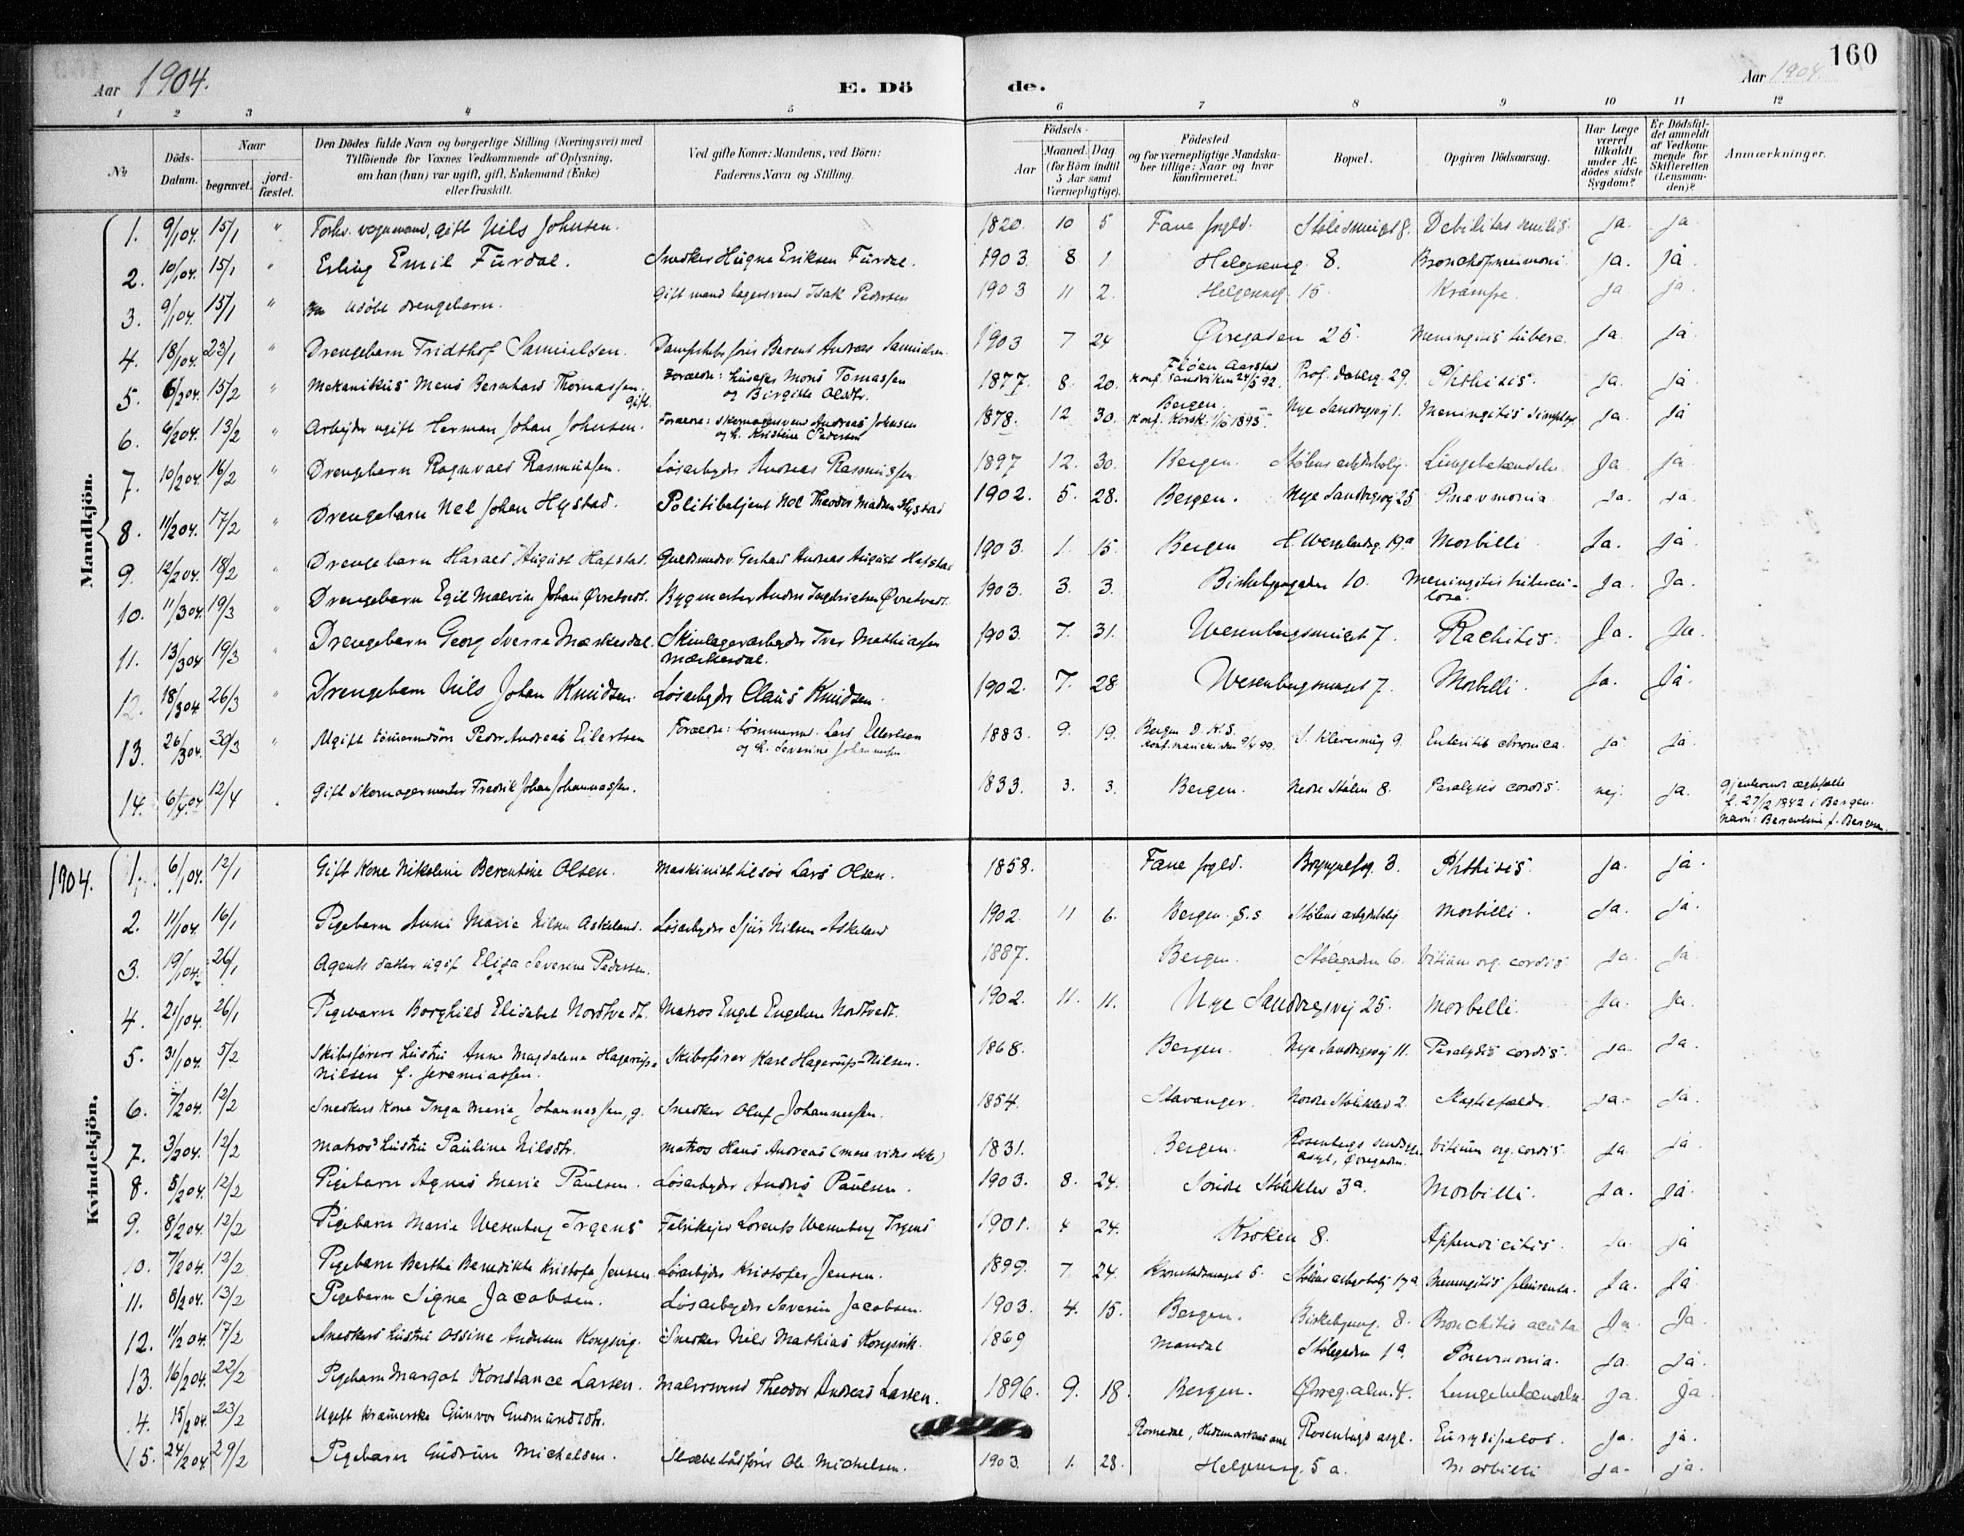 160
Aar 1904.
E. Dö
de.
Aar 1904.
1 2 3 4 5 6 7 8 9 10 11 12
No
Döds-Datum.
Naar
begravet.
jord-fæstet.
Den Dödes fulde Navn og borgerlige Stilling (Næringsvei) med
Tilföiende for Voxnes Vedkommende af Oplysning,
om han (hun) var ugift, gift, Enkemand (Enke)
eller fraskilt.
Ved gifte Koner: Mandens, ved Börn:
Faderens Navn og Stilling.
Födsels-
Aar
Maaned. Dag
(for Börn indtil
5 Aar samt
Værnepligtige).
Födested
og for værnepligtige Mandska-
ber tillige: Naar og hvor
konfirmeret.
Bopæl.
Opgiven Dödsaarsag.
Har Læge
været
tilkaldt
under Af-
dödes sidste
Sygdom?
Er Dödsfal-
det anmeldt
af Vedkom-
mende for
Skifteretten
(Lensman-
den)?
Anmærkninger.
Mandkjön.
1. 9/1 04. 15/1 " Forhv. vognmand, gift Nils Johnsen. 1820. 10 5 Fane Debilitas senilis. ja. ja
2. 10/1 04. 15/1 " Erling Emil Furdal. Snedker Eriksen Furdal. 1903. 8 1. Helgesensg. 8. Bronchopneumoni. ja. ja
3. 9/1 04. 15/1 " udöbt drengebarn. Gift mand lagersvend Isak Pedersen 1903 11 2. Helgesensg. 15. Krampe. ja ja.
4. 18/1 04. 23/1 " Drengebarn Fridthof Samuelsen. Berent Andreas Samuelsen 1903 7 24 Øvregaden 25 Meningitis tuberc. ja. ja.
5. 6/2 04. 15/2 " Mekanikus Mons Bernhard Thomassen. gift. Forældre: Mons Tomassen
og Birgitte Olsdtr. 1877. 8. 20. Aarstad
Konf. Sandviken 24/5 92. 29. Phthisis. ja. ja
6. 6/2 04. 13/2 " Arbejder ugift Herman Johan Johnsen. Forældre: Andreas Johnsen
og h. Kristine Pedersen 1878. 12 30. Bergen.
Konf. Korsk. 1895. Nye Sandvigsvej 1. Meningitis simplex. ja. ja
7. 10/2 04. 16/2 " Drengebarn Ragnvald Rasmussen. Løsarbejder Andreas Rasmussen 1897 12. 30. Bergen. Stølens arbejderbolig. Lungebetændelse. Ja. ja
8. 11/2 04. 17/2 " Drengebarn Nel Johan Hystad. Politibetjent Nel Theodor Madsen Hystad 1902. 5. 28. Bergen. Nye Sandvigsvej 25 Pnevmonia ja. ja.
9. 12/2 04. 18/2 " Drengebarn Harald August Hafstad. Guldsmedsv. Gerhard Andreas August Hafstad 1903. 1. 15. Bergen H. Wergelandsg. 19a Morbilli. Ja. ja
10. 11/3 04. 19/3 " Drengebarn Egil Malvin Johan Øvretvedt. Bygmester Anders Ingebrigtsen Øvretvedt. 1903. 3. 3. Birkebeinergaden 10. Meningitis tubercu-
losa. Ja. Ja.
11. 13/3 04 19/3 " Drengebarn Georg Sverre Mækesdal. Skinlagerarbejder Iver Mathiassen
Mækesdal. 1903. 7. 31. Wesenbergsmuget 7. Rachitis. Ja. Ja.
12. 18/3 04. 26/3 " Drengebarn Nils Johan Knudsen. Løsarbejder Claus Knudsen. 1902. 7. 28 Wesenbergsmuget 7. Morbilli. Ja. Ja.
13. 26/3 04. 30/3 " Ugift tömmermand Peder Andreas Eilertsen Forældre: tömmermd. Lars Ellertsen
og h. Severine Johannesen 1883. 9. 19. Bergen D. K. S.
Konf. Mariekirken 9/4 99. S. Kleivesmug 9. Enteritis chronica. ja ja.
14. 6/4 04 12/4 . Gift Skomagermester Fredrik Johan Johannessen. 1833. 3. 3. Bergen. Nedre Stølen 8. Paralysis cordis. nej. ja. Gjenlevende ægtefælle
f. 27/12 1842 i Bergen.
Navn: Berentine f. Bergen.
1904.
Kvindekjön.
1. 6/1 04. 12/1 Gift Kone Nikoline Berentine Olsen. Maskinist tilsös Lars Olsen. 1858. Fane Phthisis. ja. ja.
2. 11/1 04 16/1 Pigebarn Anni Marie Nilsen Askeland. Løsarbejder Sjur Nilsen Askeland 1902. 11 6. Bergen. Stølens arbejderbolig Morbilli. Ja. ja.
3. 19/1 04. 26/1 Agents datter ugift Eliza Severine Pedersen. 1887. Bergen. Stølegaden 6. Vitium org. cordis ja. Ja.
4. 21/1 04. 26/1 Pigebarn Borghild Elisabet Nordtvedt. Matros Engel Engelsen Nordtvedt. 1902. 11. 11. Nye Sandvigsvej 25. Morbilli. Ja. Ja.
5. 31/1 04. 5/2 Skibsførers hustru Anna Magdalena Hagerup-
Nilsen f. Jeremiassen. Skibsfører Karl Hagerup-Nilsen. 1868. Bergen. Nye Sandvigsvej 11. Paralysis cordis. ja. Ja.
6. 7/2 04. 12/2 Snedkers Kone Inga Marie Johannessen, g. Snedker Oluf Johannessen. 1854. Stavanger. Nordre Støkklev 2. ja. Ja.
7. 3/2 04. 12/2 Matros' hustru Pauline Nilsdtr. Matros Hans Andreas (mere vides ikke) 1831. Bergen. Rosenbergs
asyl, Øvregaden. Vitium org. cordis. ja. ja
8. 5/2 04. 12/2 Pigebarn Agnes Marie Paulsen. Løsarbejder Anders Paulsen. 1903. 8. 24. Søndre Støkklev 3a. Morbilli. Ja. ja.
9. 8/2 04. 12/2 Pigebarn Marie Wesenberg Irgens Fabrikejer Lorentz Wesenberg Irgens 1901. 4 24. Kroken 8. Appendicitis. ja. ja
10. 7/2 04. 12/2 Pigebarn Berthe Benedikte Kristofa Jensen Løsarbejder Kristofer Jensen. 1899. 7. 24. Kronstadsmuget 5. Stølens arbejderbolig 17a. Ja. Ja
11. 8/2 04. 13/2 Pigebarn Signe Jacobsen. Løsarbejder Severin Jacobsen. 1903. 4. 15. Bergen. Birkebeinerg. 8. Bronchitis acuta Ja. Ja
12. 11/2 04. 17/2 Snedkers hustru Ossine Andersen Kongsvig. Snedker Nils Mathias Kongsvik. 1869 Mandal Stølegaden 1a. Pnevmonia. ja. ja.
13. 16/2 04. 22/2 Pigebarn Margot Konstance Larsen. Malersvend Theodor Andreas Larsen. 1896. 9. 18. Bergen. Øvreg.alm. 4. Lungebetændelse ja. Ja
4. 15/2 04. 23/2 Ugift Kræmmerske Gunvor Gudmundsdtr. Romedal, Hedemarkens amt Rosenbergs asyl. Eurysipelas. ja. ja.
15. 24/2 04 29/2 Pigebarn Gudrun Michelsen. Slæbebådsfører Ole Michelsen. 1903. 1. 28. Helgesensg. 5 a. Morbilli ja. ja.